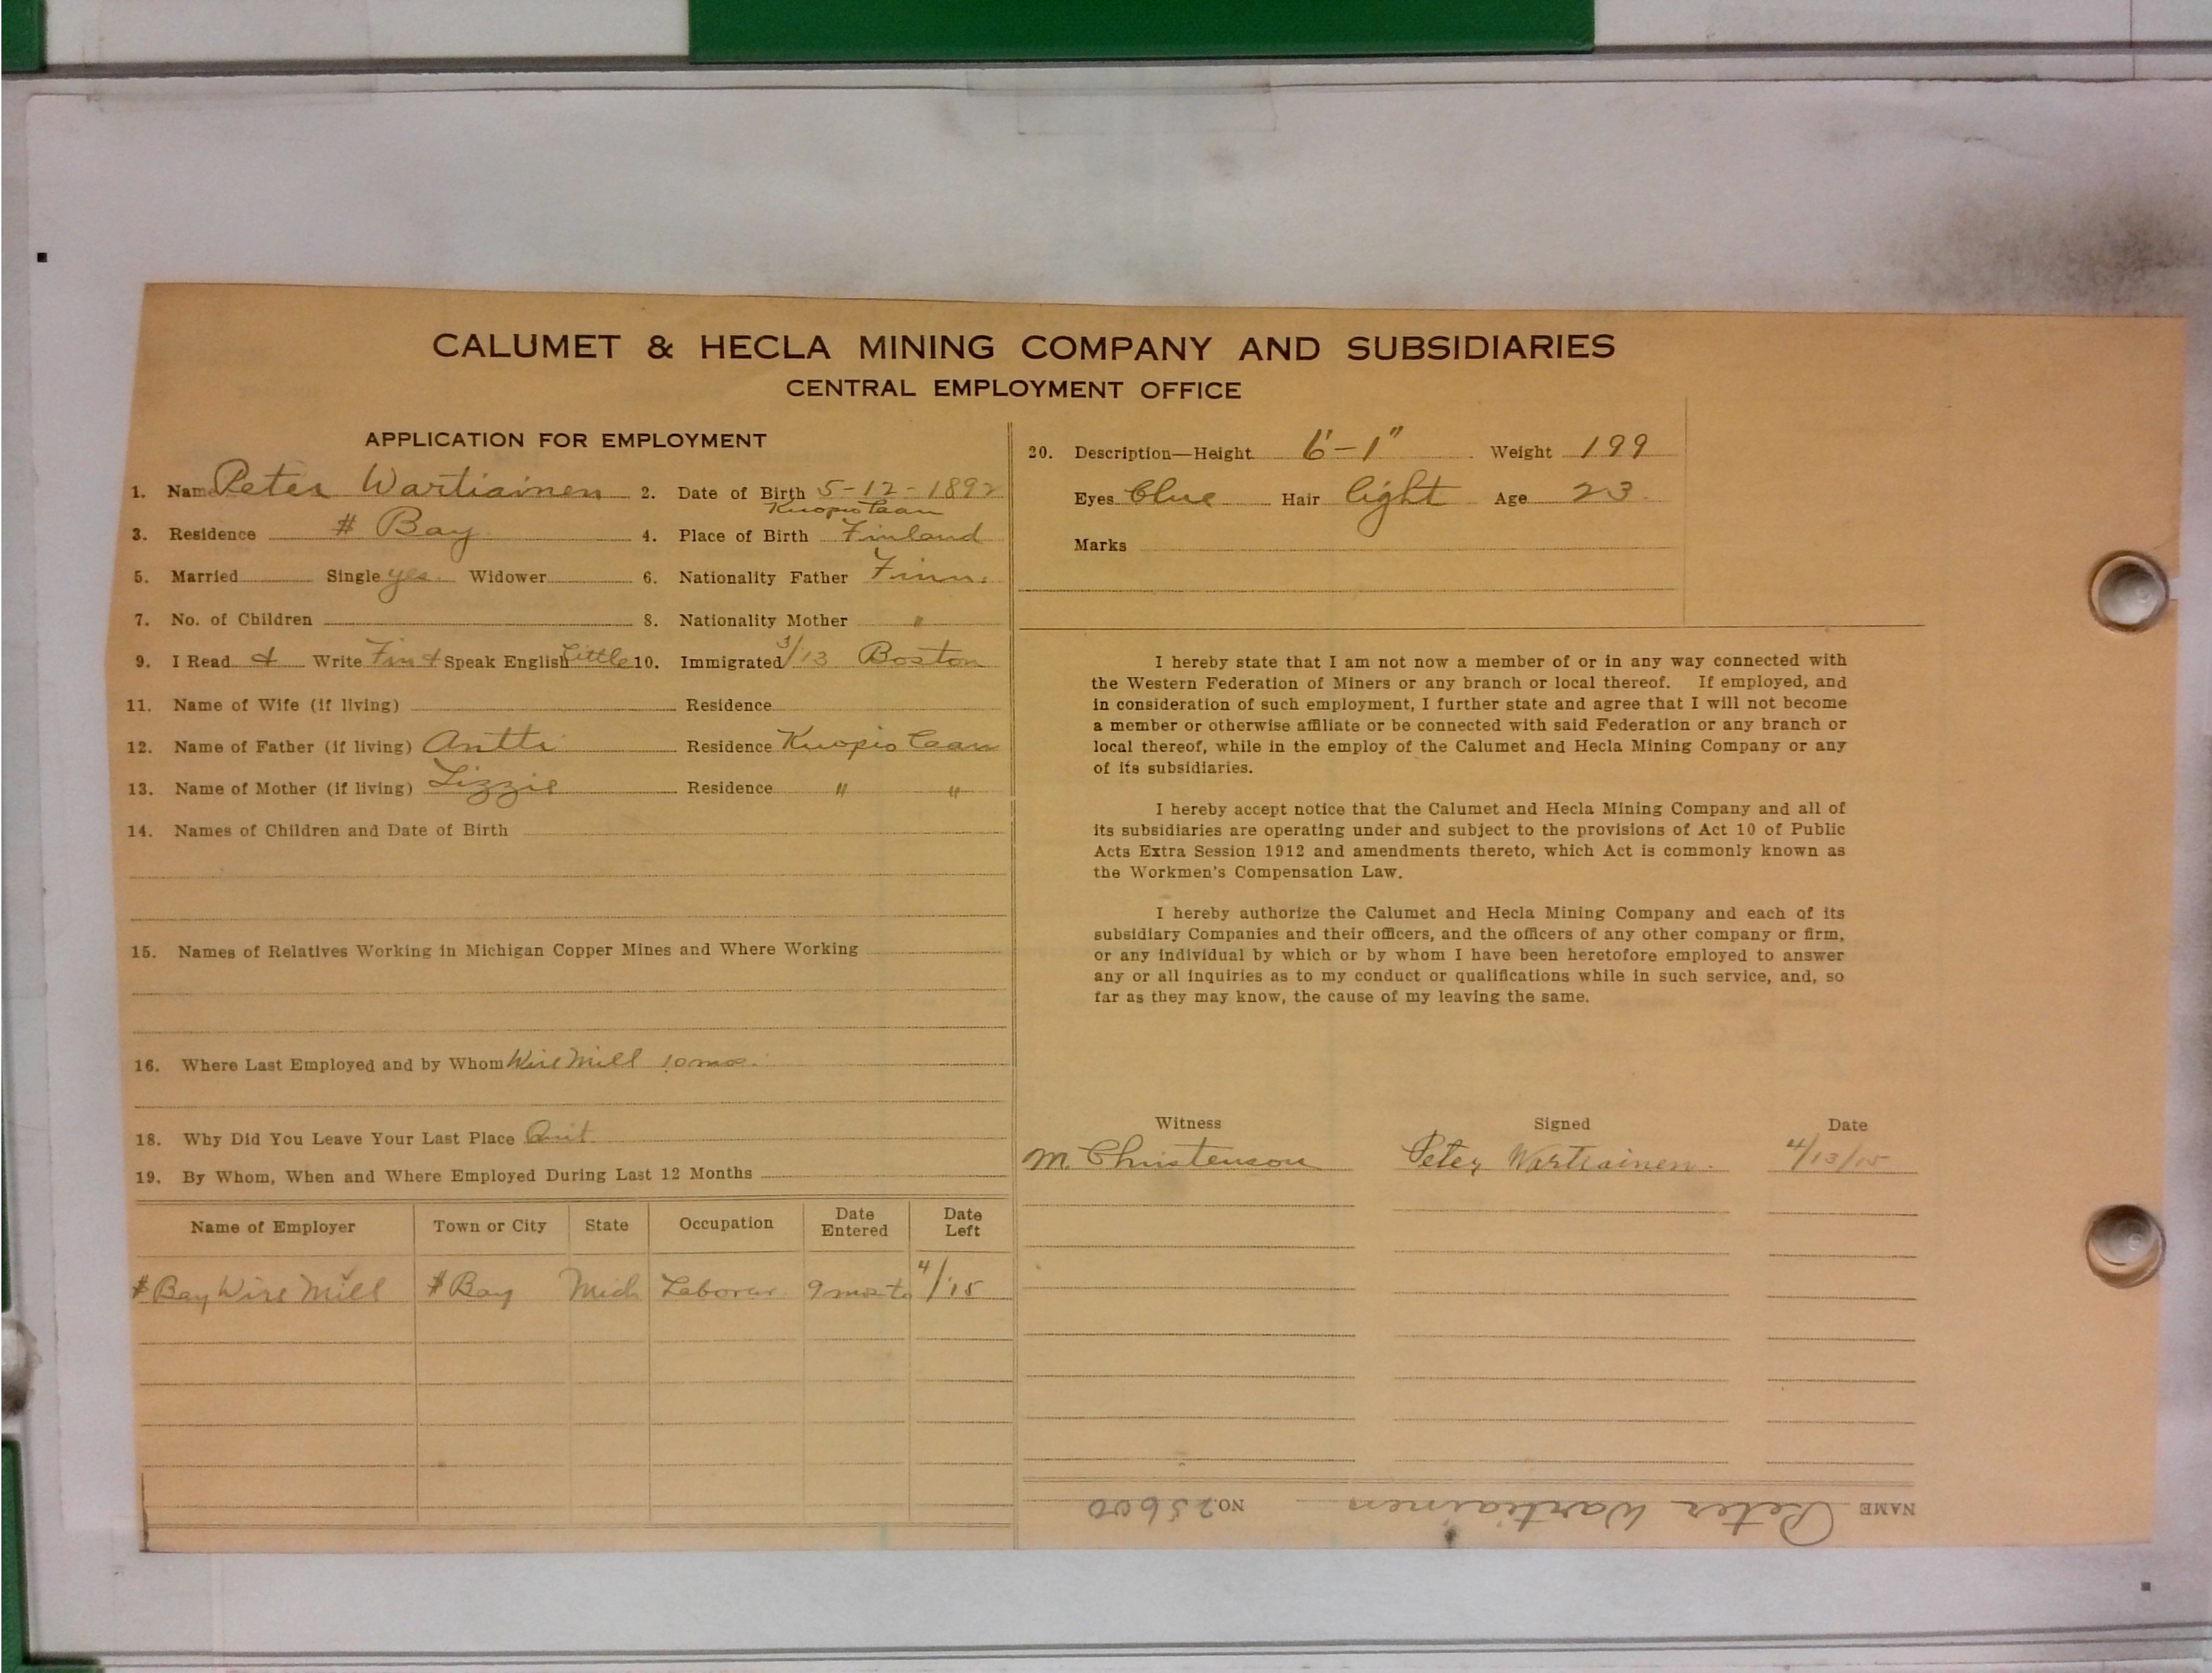 CALUMET & HECLA MINING COMPANY AND SUBSIDIARIES
CENTRAL EMPLOYMENT OFFICE
APPLICATION FOR EMPLOYMENT
1. Name Peter Wartiainen 2. Date of Birth 5-12-1892
Kuopio Laan
3. Residence # Bay 4. Place of Birth Finland
5. Married Single yes Widower 6. Nationality Father Finn.
7. No. of Children 8. Nationality Mother "
9. I Read & Write Fin & Speak English Little 10. Immigrated 3/13 Boston
11. Name of Wife (if living) Residence
12. Name of Father (if living) Antti Residence Kuopio Laan
13. Name of Mother (if living) Lizzie Residence " "
14. Names of Children and Date of Birth
15. Names of Relatives Working in Michigan Copper Mines and Where Working
16. Where Last Employed and by Whom Wire Mill 10 mos.
18. Why Did You Leave Your Last Place Quit
19. By Whom, When and Where Employed During Last 12 Months
Name of Employer Town or City State Occupation Date Entered Date Left
# Bay Wire Mill # Bay Mich Laborer 9 mos to 4/15
20. Description—Height 6'-1" Weight 199
Eyes Blue Hair light Age 23
Marks
I hereby state that I am not now a member of or in any way connected with
the Western Federation of Miners or any branch or local thereof. If employed, and
in consideration of such employment, I further state and agree that I will not become
a member or otherwise affiliate or be connected with said Federation or any branch or
local thereof, while in the employ of the Calumet and Hecla Mining Company or any
of its subsidiaries.
I hereby accept notice that the Calumet and Hecla Mining Company and all of
its subsidiaries are operating under and subject to the provisions of Act 10 of Public
Acts Extra Session 1912 and amendments thereto, which Act is commonly known as
the Workmen's Compensation Law.
I hereby authorize the Calumet and Hecla Mining Company and each of its
subsidiary Companies and their officers, and the officers of any other company or firm,
or any individual by which or by whom I have been heretofore employed to answer
any or all inquiries as to my conduct or qualifications while in such service, and, so
far as they may know, the cause of my leaving the same.
Witness Signed Date
M. Christenson Peter Wartiainen. 4/13/15
NAME Peter Wartiainen NO. 25600